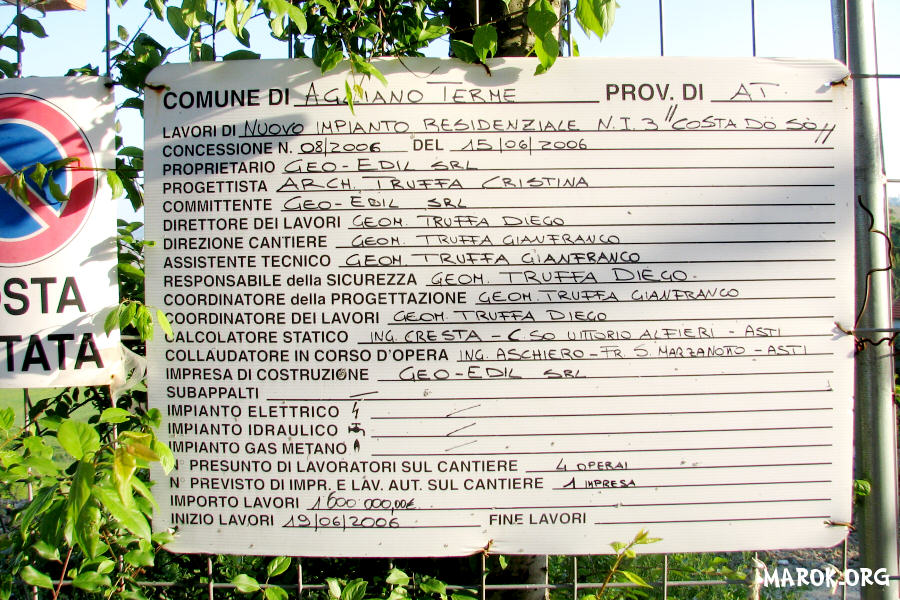 COMUNE DI AGLIANO TERME PROV. DI AT.
LAVORI DI NUOVO IMPIANTO RESIDENZIALE N.I.3 "COSTA DÖ SÒ"
CONCESSIONE N. 08/2006 DEL 15/06/2006
PROPRIETARIO GEO-EDIL SRL
PROGETTISTA ARCH. TRUFFA CRISTINA
COMMITTENTE GEO-EDIL SRL
DIRETTORE DEI LAVORI GEOM. TRUFFA DIEGO
DIREZIONE CANTIERE GEOM. TRUFFA GIANFRANCO
ASSISTENTE TECNICO GEOM. TRUFFA GIANFRANCO
RESPONSABILE della SICUREZZA GEOM. TRUFFA DIEGO.
COORDINATORE della PROGETTAZIONE GEOM. TRUFFA GIANFRANCO
COORDINATORE DEI LAVORI GEOM. TRUFFA DIEGO
CALCOLATORE STATICO ING. CRESTA - C.SO VITTORIO ALFIERI - ASTI
COLLAUDATORE IN CORSO D'OPERA ING. ASCHIERO - FR. S. MARZANOTTO - ASTI
IMPRESA DI COSTRUZIONE GEO-EDIL SRL
SUBAPPALTI
IMPIANTO ELETTRICO
IMPIANTO IDRAULICO
IMPIANTO GAS METANO
PRESUNTO DI LAVORATORI SUL CANTIERE 4 OPERAI
N° PREVISTO DI IMPR. E LAV. AUT. SUL CANTIERE 1 IMPRESA
IMPORTO LAVORI 1 600 000,00€
INIZIO LAVORI 19/06/2006 FINE LAVORI
OSTA
TATA
iMAROK.ORG